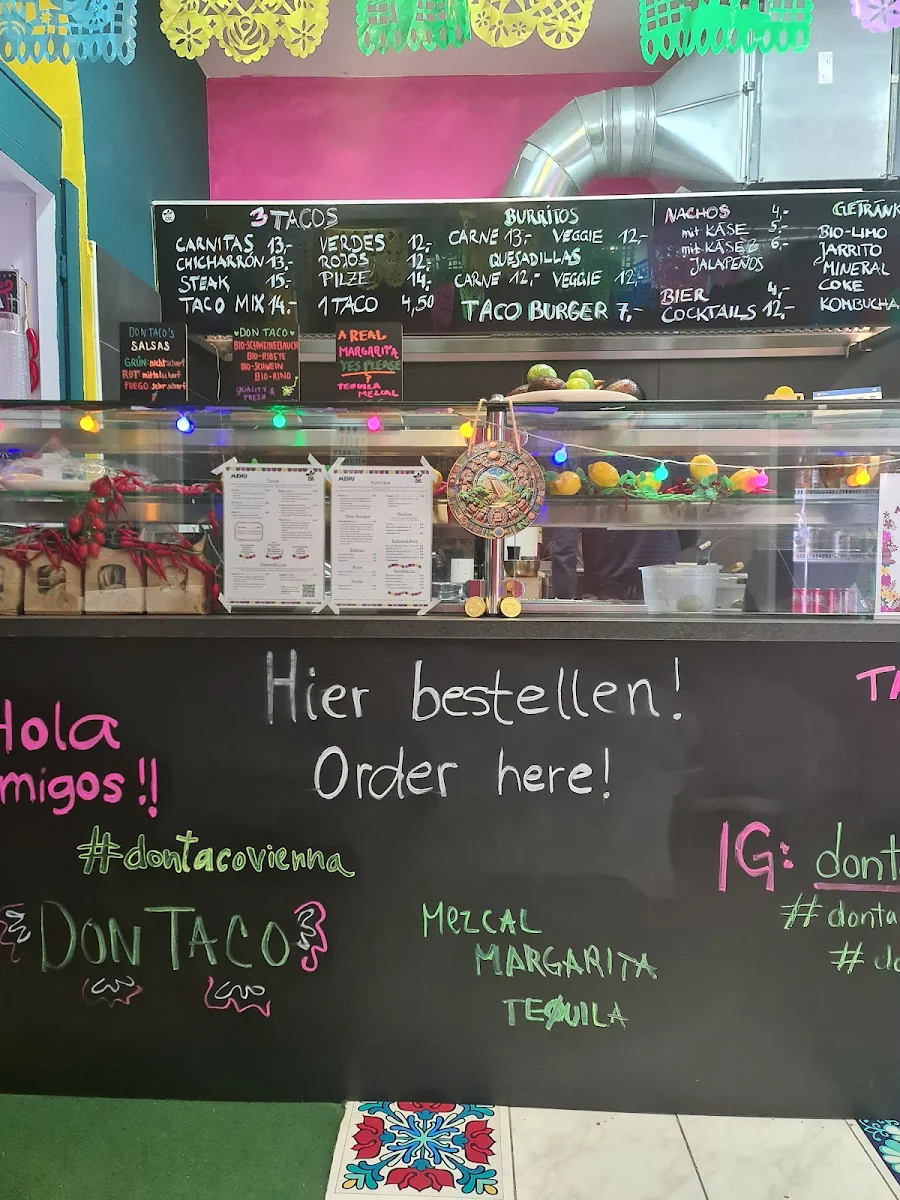 3 TACOS
CARNITAS 13,-
CHICHARRÓN 13,-
STEAK 15,-
TACO MIX 14,-
VERDES 12,-
ROJOS 12,-
PILZE 14,-
1 TACO 4,50
BURRITOS
CARNE 13,- VEGGIE 12,-
QUESADILLAS
CARNE 12,- VEGGIE 12,-
TACO BURGER 7,-
NACHOS 4,-
mit KÄSE 5,-
mit KÄSE & 6,-
JALAPEÑOS
BIER 4,-
COCKTAILS 12,-
GETRÄNK
BIO-LIMO
JARRITO
MINERAL
COKE
KOMBUCHA
DON TACO'S
SALSAS
GRÜN: nicht scharf
ROT mittelscharf
FUEGO sehr scharf
DON TACO
BIO-SCHWEINEBAUCH
BIO-RIBEYE
BIO-SCHWEIN
BIO-RIND
QUALITY &
FRESH
A REAL
MARGARITA
YES PLEASE
TEQUILA
MEZCAL
MENU
MENU
Hier bestellen!
Order here!
Hola
migos!!
#dontacovienna
DON TACO
MEZCAL
MARGARITA
TEQUILA
TA
IG: dont
#donta
#do